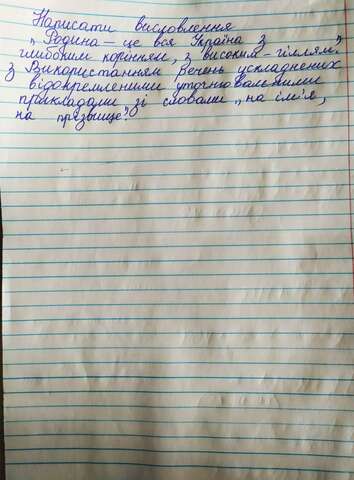 Написати висловлення
"Родина – це вся Україна з
глибоким корінням, з високим – гіллям"
з Використанням Речень ускладнених
відокремленими уточнювальними
прикладами зі словами „на ім'я,
на прізвище".